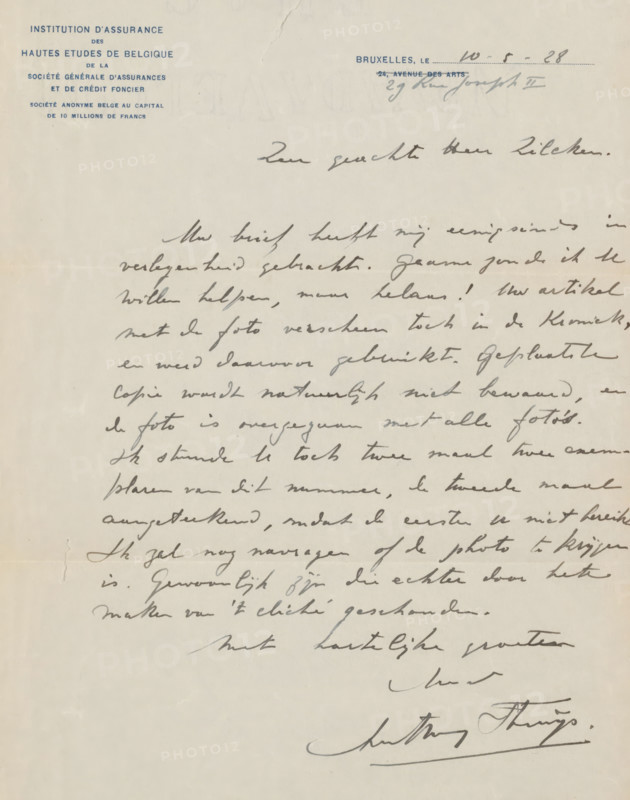 INSTITUTION D'ASSURANCE
DES
HAUTES ETUDES DE BELGIQUE
DE LA
SOCIÉTÉ GÉNÉRALE D'ASSURANCES
ET DE CRÉDIT FONCIER
SOCIÉTÉ ANONYME BELGE AU CAPITAL
DE 10 MILLIONS DE FRANCS
BRUXELLES, LE 10-5-28
24, AVENUE DES ARTS
29 Rue Joseph II
Zeer geachte Heer Zilcken.
Uw brief heeft mij eenigszins in
verlegenheid gebracht. Gaarne zoude ik U
willen helpen, maar helaas! Uw artikel
met de foto verscheen toch in de Kroniek,
en werd daarvoor gebruikt. Geplaatste
Copie wordt natuurlijk niet bewaard, en
de foto is overgegaan met alle foto's.
Ik stuurde U toch twee maal twee exem-
plaren van dit nummer, de tweede maal
aangeteekend, omdat de eersten U niet bereikt
Ik zal nog navragen of de photo te krijgen
is. Gewoonlijk zijn die echter door het
maken van 't cliché geschonden.
Met hartelijke groeten
PHOTO12